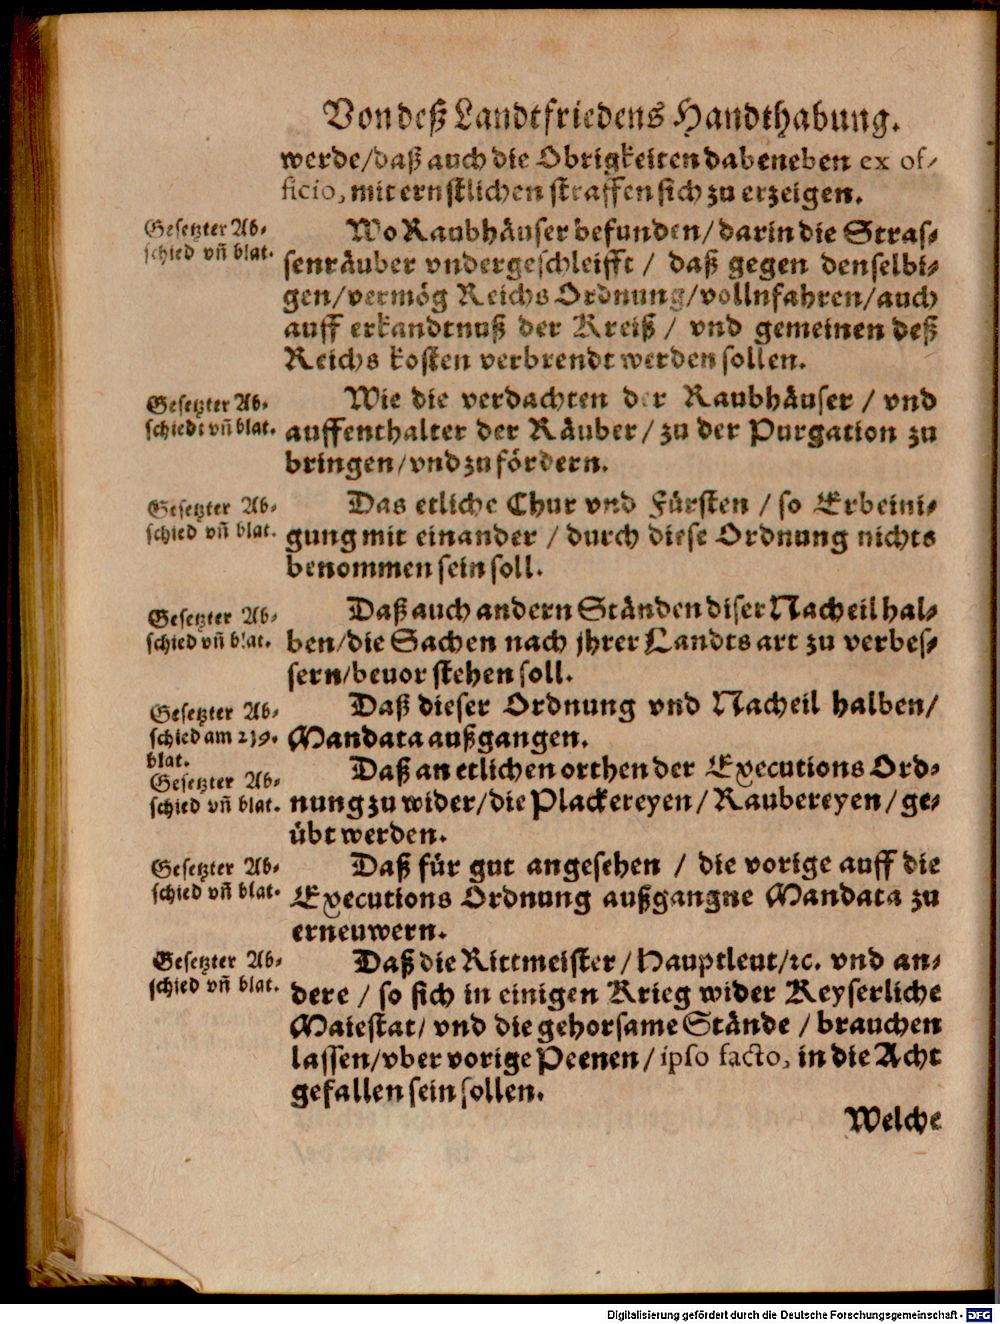 Von deß Landtfriedens Handthabung.
werde/daß auch die Obrigkeiten dabeneben ex of-
ficio, mit ernstlichen straffen sich zu erzeigen.
Gesetzter Ab-
schied vñ blat.
Wo Raubhäuser befunden/darin die Stras-
senräuber vndergeschleifft / daß gegen denselbi-
gen/vermög Reichs Ordnung/vollnfahren/auch
auff erkandtnuß der Kreiß / vnd gemeinen deß
Reichs kosten verbrendt werden sollen.
Gesetzter Ab-
schiedt vñ blat.
Wie die verdachten der Raubhäuser / vnd
auffenthalter der Räuber/zu der Purgation zu
bringen/vnd zu fördern.
Gesetzter Ab-
schied vñ blat.
Das etliche Chur vnd Fürsten / so Erbeini-
gung mit einander / durch diese Ordnung nichts
benommen sein soll.
Gesetzter Ab-
schied vñ blat.
Daß auch andern Ständen diser Nacheil hal-
ben/die Sachen nach jhrer Landts art zu verbes-
sern/beuor stehen soll.
Gesetzter Ab-
schied am 239.
blat.
Daß dieser Ordnung vnd Nacheil halben/
Mandata außgangen.
Gesetzter Ab-
schied vñ blat.
Daß an etlichen orthen der Executions Ord-
nung zu wider/die Plackereyen/Raubereyen/ge-
übt werden.
Gesetzter Ab-
schied vñ blat.
Daß für gut angesehen / die vorige auff die
Executions Ordnung außgangne Mandata zu
erneuwern.
Gesetzter Ab-
schied vñ blat.
Daß die Rittmeister/Hauptleut/ꝛc. vnd an-
dere / so sich in einigen Krieg wider Keyserliche
Maiestat/ vnd die gehorsame Stände / brauchen
lassen/vber vorige Peenen/ipso facto, in die Acht
gefallen sein sollen.
Welche
Digitalisierung gefördert durch die Deutsche Forschungsgemeinschaft - DFG